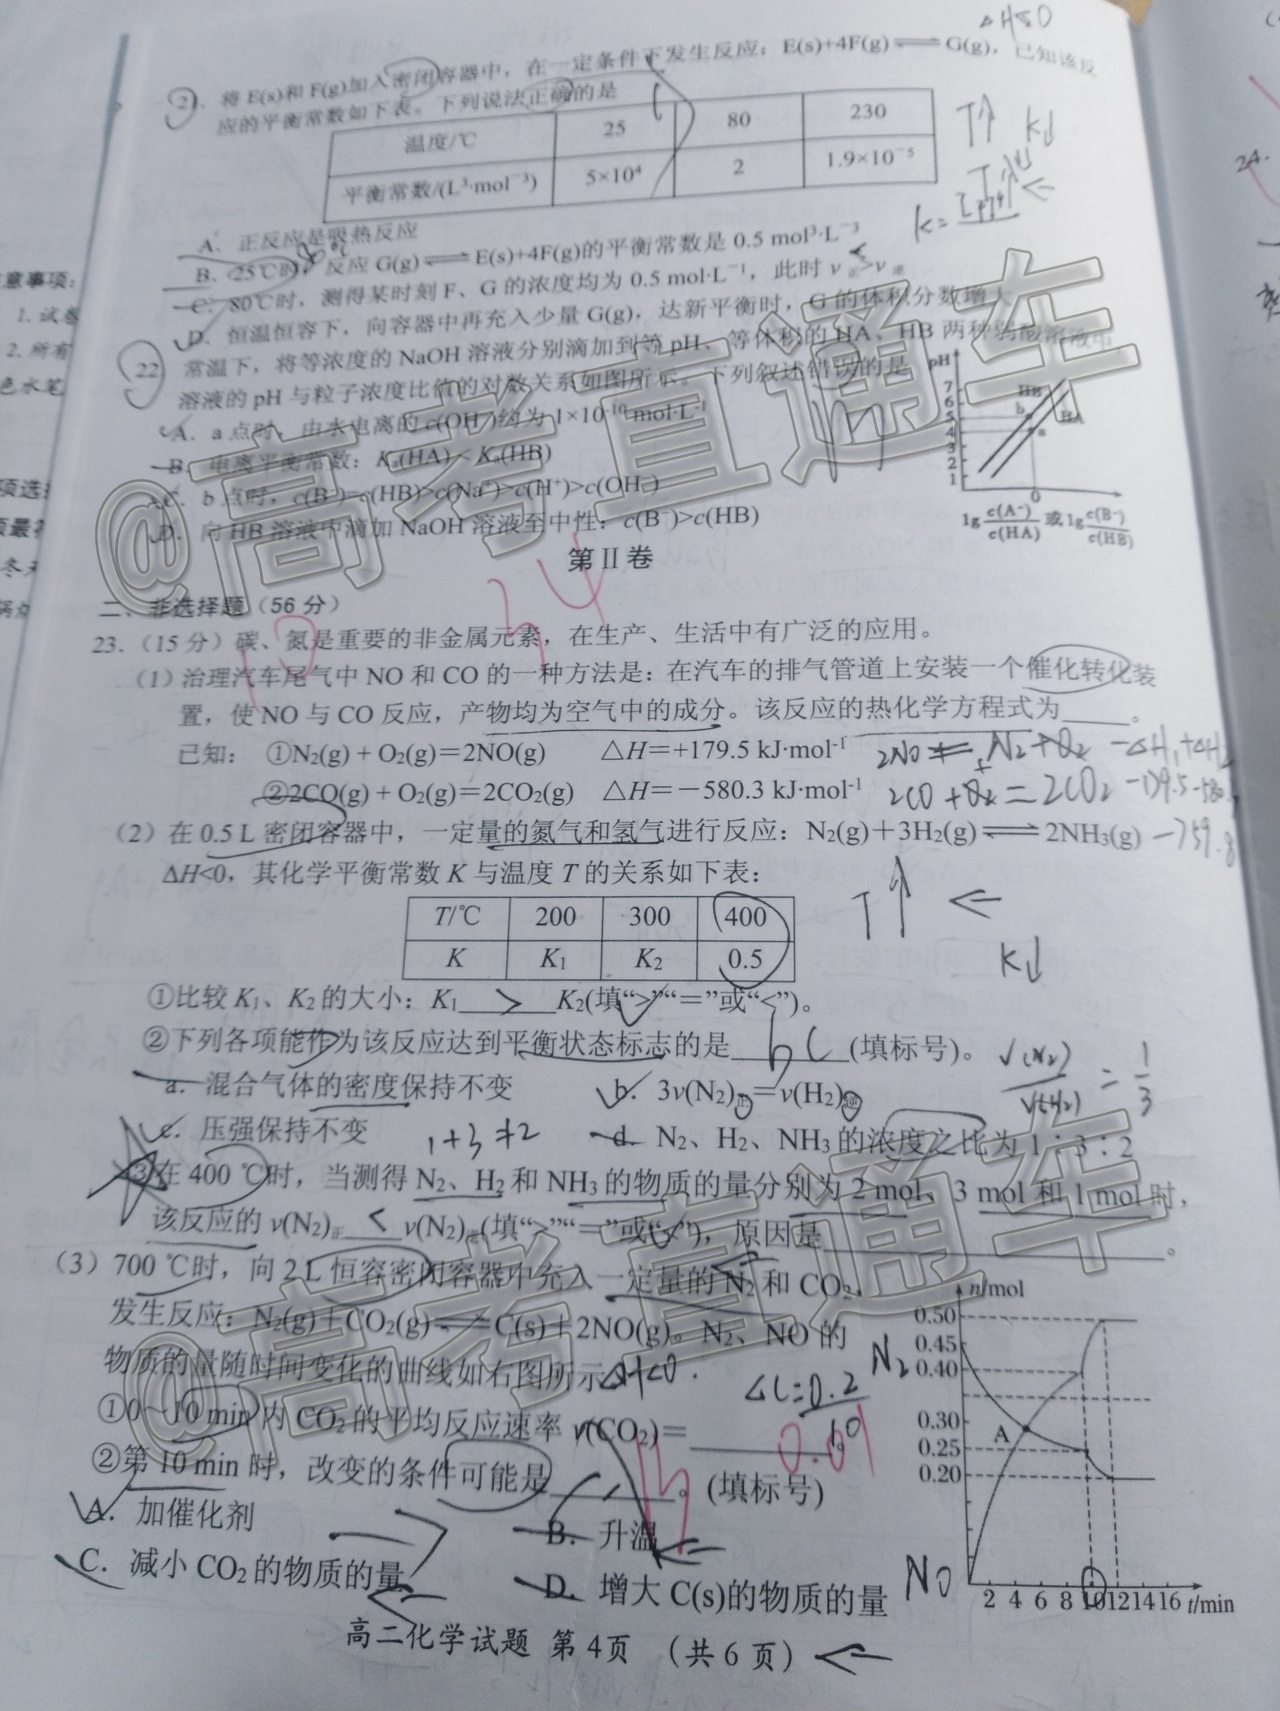 △H<0
21. 将 E(s)和 F(g)加入密闭容器中，在一定条件下发生反应：E(s)+4F(g)⇌G(g)，已知该反
应的平衡常数如下表。下列说法正确的是
温度/℃ 25 80 230
平衡常数/(L³·mol⁻³) 5×10⁴ 2 1.9×10⁻⁵
T↑ K↓
A. 正反应是吸热反应
B. 25℃时，反应 G(g)⇌E(s)+4F(g)的平衡常数是 0.5 mol³·L⁻³
C. 80℃时，测得某时刻 F、G 的浓度均为 0.5 mol·L⁻¹，此时 v正>v逆
D. 恒温恒容下，向容器中再充入少量 G(g)，达新平衡时，G 的体积分数增大
22. 常温下，将等浓度的 NaOH 溶液分别滴加到等 pH、等体积的 HA、HB 两种弱酸溶液中
溶液的 pH 与粒子浓度比值的对数关系如图所示。下列叙述错误的是
A. a 点时，由水电离的 c(OH⁻)约为 1×10⁻¹⁰ mol·L⁻¹
B. 电离平衡常数：Ka(HA)<Ka(HB)
C. b 点时，c(B⁻)=c(HB)>c(Na⁺)>c(H⁺)>c(OH⁻)
D. 向 HB 溶液中滴加 NaOH 溶液至中性：c(B⁻)>c(HB)
pH
7
6
5
4
3
2
1
HB
b
HA
a
0
lg c(A⁻)/c(HA) 或 lg c(B⁻)/c(HB)
第Ⅱ卷
二、非选择题（56 分）
23.（15 分）碳、氮是重要的非金属元素，在生产、生活中有广泛的应用。
（1）治理汽车尾气中 NO 和 CO 的一种方法是：在汽车的排气管道上安装一个催化转化装
置，使 NO 与 CO 反应，产物均为空气中的成分。该反应的热化学方程式为____。
已知： ①N₂(g) + O₂(g)=2NO(g) △H=+179.5 kJ·mol⁻¹
2NO = N₂+O₂ -△H₁+△H₂
②2CO(g) + O₂(g)=2CO₂(g) △H=－580.3 kJ·mol⁻¹
2CO+O₂=2CO₂
-759.8
（2）在 0.5 L 密闭容器中，一定量的氮气和氢气进行反应：N₂(g)＋3H₂(g)⇌2NH₃(g)
ΔH<0，其化学平衡常数 K 与温度 T 的关系如下表：
T/℃ 200 300 400
K K₁ K₂ 0.5
T↑ ←
K↓
①比较 K₁、K₂的大小：K₁ > K₂(填“>”“=”或“<”)。
②下列各项能作为该反应达到平衡状态标志的是 bc (填标号)。
v(N₂)/v(H₂) = 1/3
a. 混合气体的密度保持不变 b. 3v(N₂)正=v(H₂)逆
c. 压强保持不变 1+3≠2 d. N₂、H₂、NH₃的浓度之比为 1∶3∶2
③在 400 ℃时，当测得 N₂、H₂和 NH₃的物质的量分别为 2 mol、3 mol 和 1 mol 时，
该反应的 v(N₂)正 < v(N₂)逆(填“>”“=”或“<”)，原因是____。
（3）700 ℃时，向 2 L 恒容密闭容器中充入一定量的 N₂和 CO₂，
发生反应：N₂(g)＋CO₂(g)⇌C(s)＋2NO(g)。N₂、NO 的
物质的量随时间变化的曲线如右图所示
△H<0.
①0～10 min 内 CO₂的平均反应速率 v(CO₂)=____。
②第 10 min 时，改变的条件可能是____。(填标号)
A. 加催化剂 B. 升温
C. 减小 CO₂的物质的量 D. 增大 C(s)的物质的量
n/mol
0.50
0.45
0.40
0.30
0.25
0.20
N₂
A
NO
2 4 6 8 10 12 14 16 t/min
高二化学试题 第4页 （共 6 页）
意事项：
1. 试卷
2. 所有
色水笔
24.
@高考直通车
@高考直通车